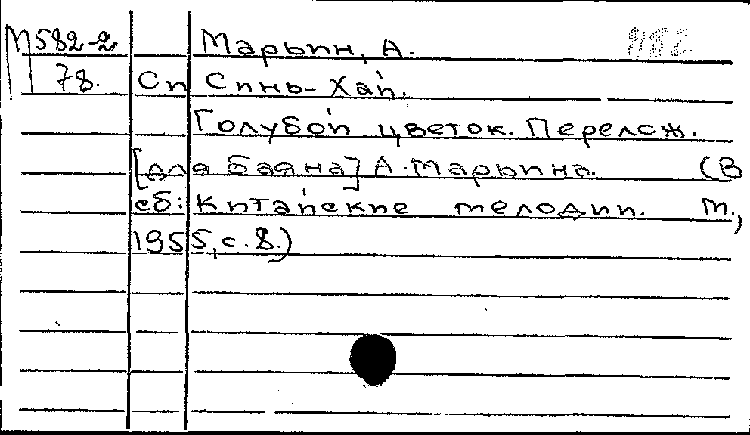 М582-2 Марьин, А. 982
78. Сп Синь-Хай.
Голубой цветок. Перелож.
[для баяна] А. Марьина. (В
сб: Китайские мелодии. М.,
1955, с. 8.)